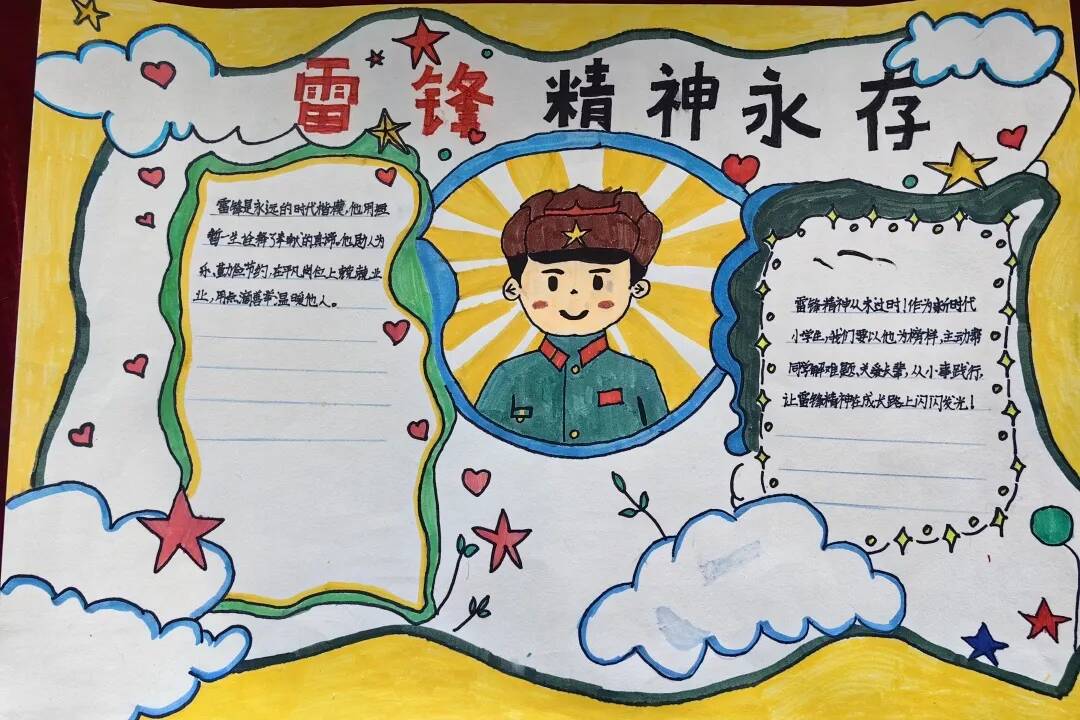 雷锋精神永存
雷锋是永远的时代楷模,他用短
暂一生诠释了奉献的真谛。他助人为
乐、勤俭节约,在平凡岗位上兢兢业
业,用点滴善举温暖他人。
雷锋精神从未过时!作为新时代
小学生,我们要以他为榜样,主动帮
同学解难题、关爱长辈,从小事践行,
让雷锋精神在成长路上闪闪发光!